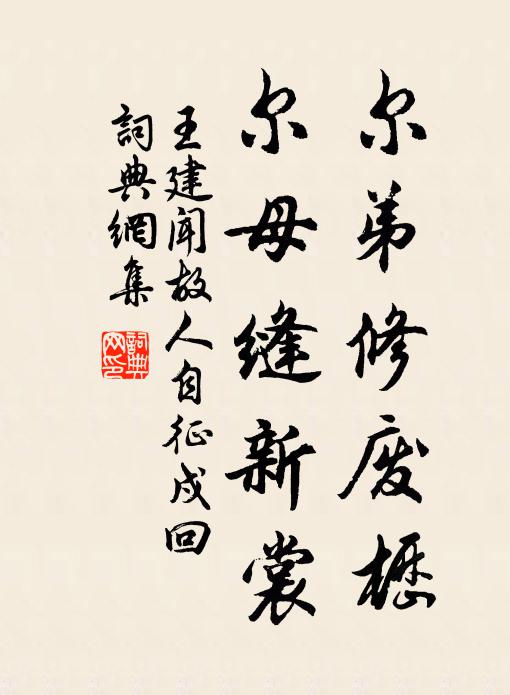 尔弟修废櫪
尔母缝新裳
王建闻故人自征戍回
詞典網集
詞典
网印